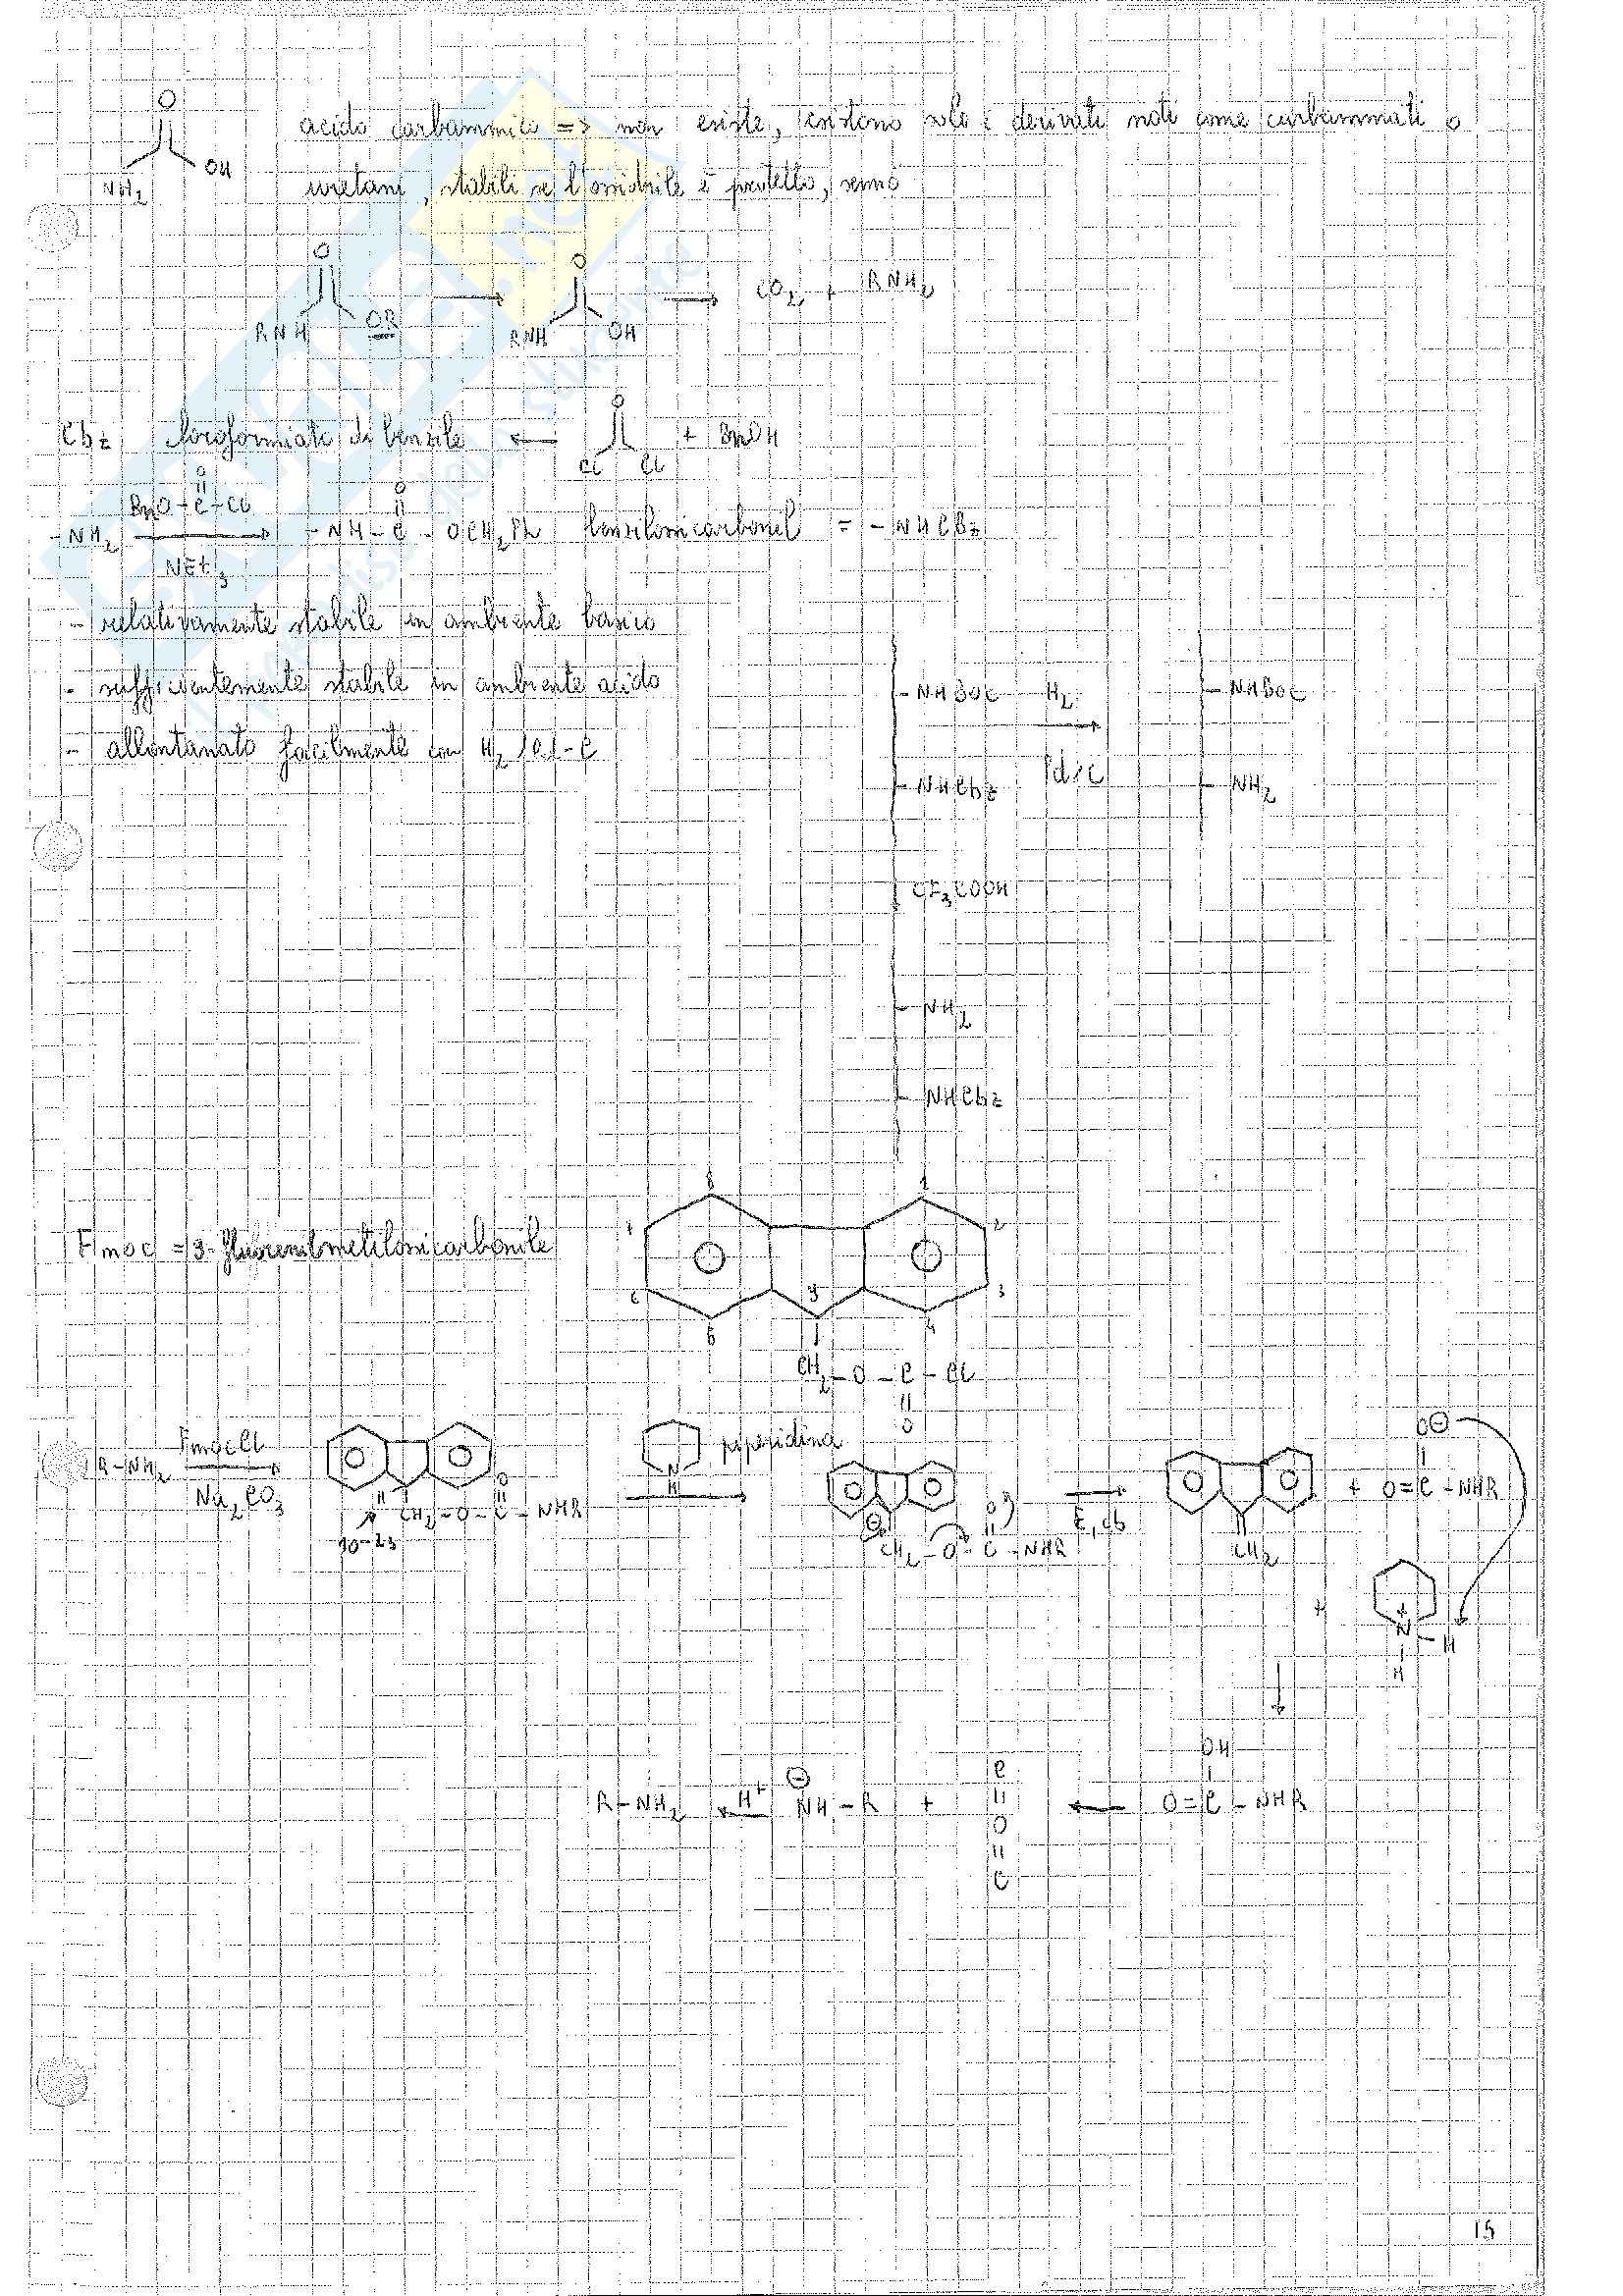 O
acido carbammico => non esiste, esistono solo i derivati noti come carbammati o
NH2 OH
uretani, stabili se l'ossidrile è protetto, sennò
O O
RNH OR → RNH OH → CO2 + RNH2
Cbz cloroformiato di benzile ← O Cl Cl + BnOH
O O
-NH2 BnO-C-Cl NEt3 → -NH-C-OCH2Ph benzilossicarbonil = -NHCBz
- relativamente stabile in ambiente basico
- sufficientemente stabile in ambiente acido
- allontanato facilmente con H2/Pd-C
-NHBoc H2 → -NHBoc
-NHCbz Pd/C -NH2
CF3COOH
-NH2
-NHCbz
8 1
Fmoc = 9-fluorenilmetilossicarbonile 7 2
6 9 3
5 4
CH2-O-C-Cl
O
R-NH2 FmocCl → piperidina N H
Na2CO3
H CH2-O-C-NHR O
10-23
⊖ CH2-O-C-NHR O
E1cb → CH2 + O=C-NHR O⊖
+ N+ -H H
↓
OH
R-NH2 ← H+ ⊖ NH-R + ← O=C-NHR
C
O
C
15